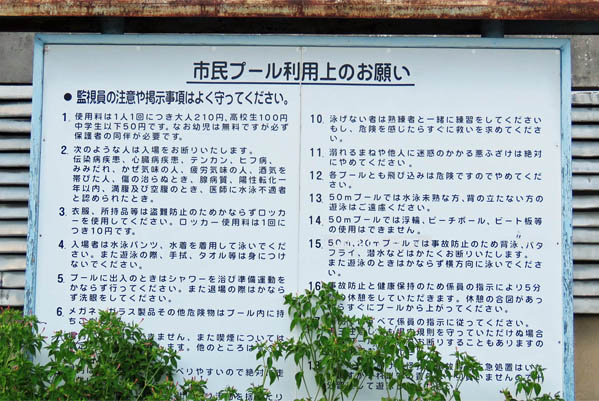 市民プール利用上のお願い
● 監視員の注意や掲示事項はよく守ってください。
1. 使用料は1人1回につき大人210円、高校生100円
中学生以下50円です。なお幼児は無料ですが必ず
保護者の同伴が必要です。
2. 次のような人は入場をお断りいたします。
伝染病疾患、心臓病疾患、テンカン、ヒフ病、
みみだれ、かぜ気味の人、疲労気味の人、酒気を
帯びた人、傷の治らぬとき、腺病質、陽性転化一
年以内、満腹及び空腹のとき、医師に水泳不適者
と認められたとき。
3. 衣服、所持品等は盗難防止のためかならずロッカ
ーを使用してください。ロッカー使用料は1回に
つき10円です。
4. 入場者は水泳パンツ、水着を着用して泳いでくだ
さい。また遊泳の際、手拭、タオル等は身につけ
ないでください。
5. プールに出入のときはシャワーを浴び準備運動を
かならず行ってください。また退場の際はかなら
ず洗眼をしてください。
6. メガネ、ガラス製品その他危険物はプール内に持
ちこ
きません、また喫煙については
ます。他のところは
べりやすいので絶対
10. 泳げない者は熟練者と一緒に練習をしてください
もし、危険を感じたらすぐに救いを求めてくださ
い。
11. 溺れるまねや他人に迷惑のかかる悪ふざけは絶対
にやめてください。
12. 各プールとも飛び込みは危険ですのでやめてくだ
さい。
13. 50mプールでは水泳未熟な方、背の立たない方の
遊泳はご遠慮ください。
14. 50mプールでは浮輪、ビーチボール、ビート板等
の使用はできません。
15. 50m、20mプールでは事故防止のため背泳、バタ
フライ、潜水などはかたくお断りいたします。
また遊泳のときはかならず横方向に泳いでくださ
い。
16. 事故防止と健康保持のため係員の指示により5分
の休憩をしていただきます。休憩の合図があっ
らすぐにプールから上がってください。
べて係員の指示に従ってください。
規則を守っていただけぬ場合
お断りすることもありますの
急処置はい